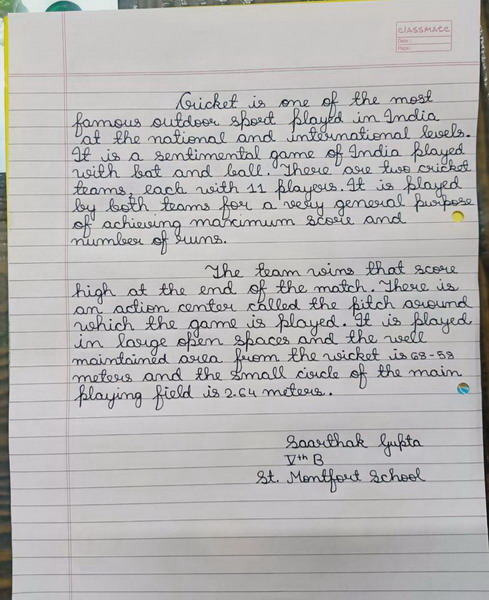 CLASSMATE
Date :
Page :
Cricket is one of the most
famous outdoor sport played in India
at the national and international levels.
It is a sentimental game of India played
with bat and ball. There are two cricket
teams, each with 11 players. It is played
by both teams for a very general purpose
of achieving maximum score and
number of runs.
The team wins that score
high at the end of the match. There is
an action center called the pitch around
which the game is played. It is played
in large open spaces and the well
maintained area from the wicket is 68-58
meters and the small circle of the main
playing field is 2.64 meters.
Saarthak Gupta
Vth B
St. Montfort School